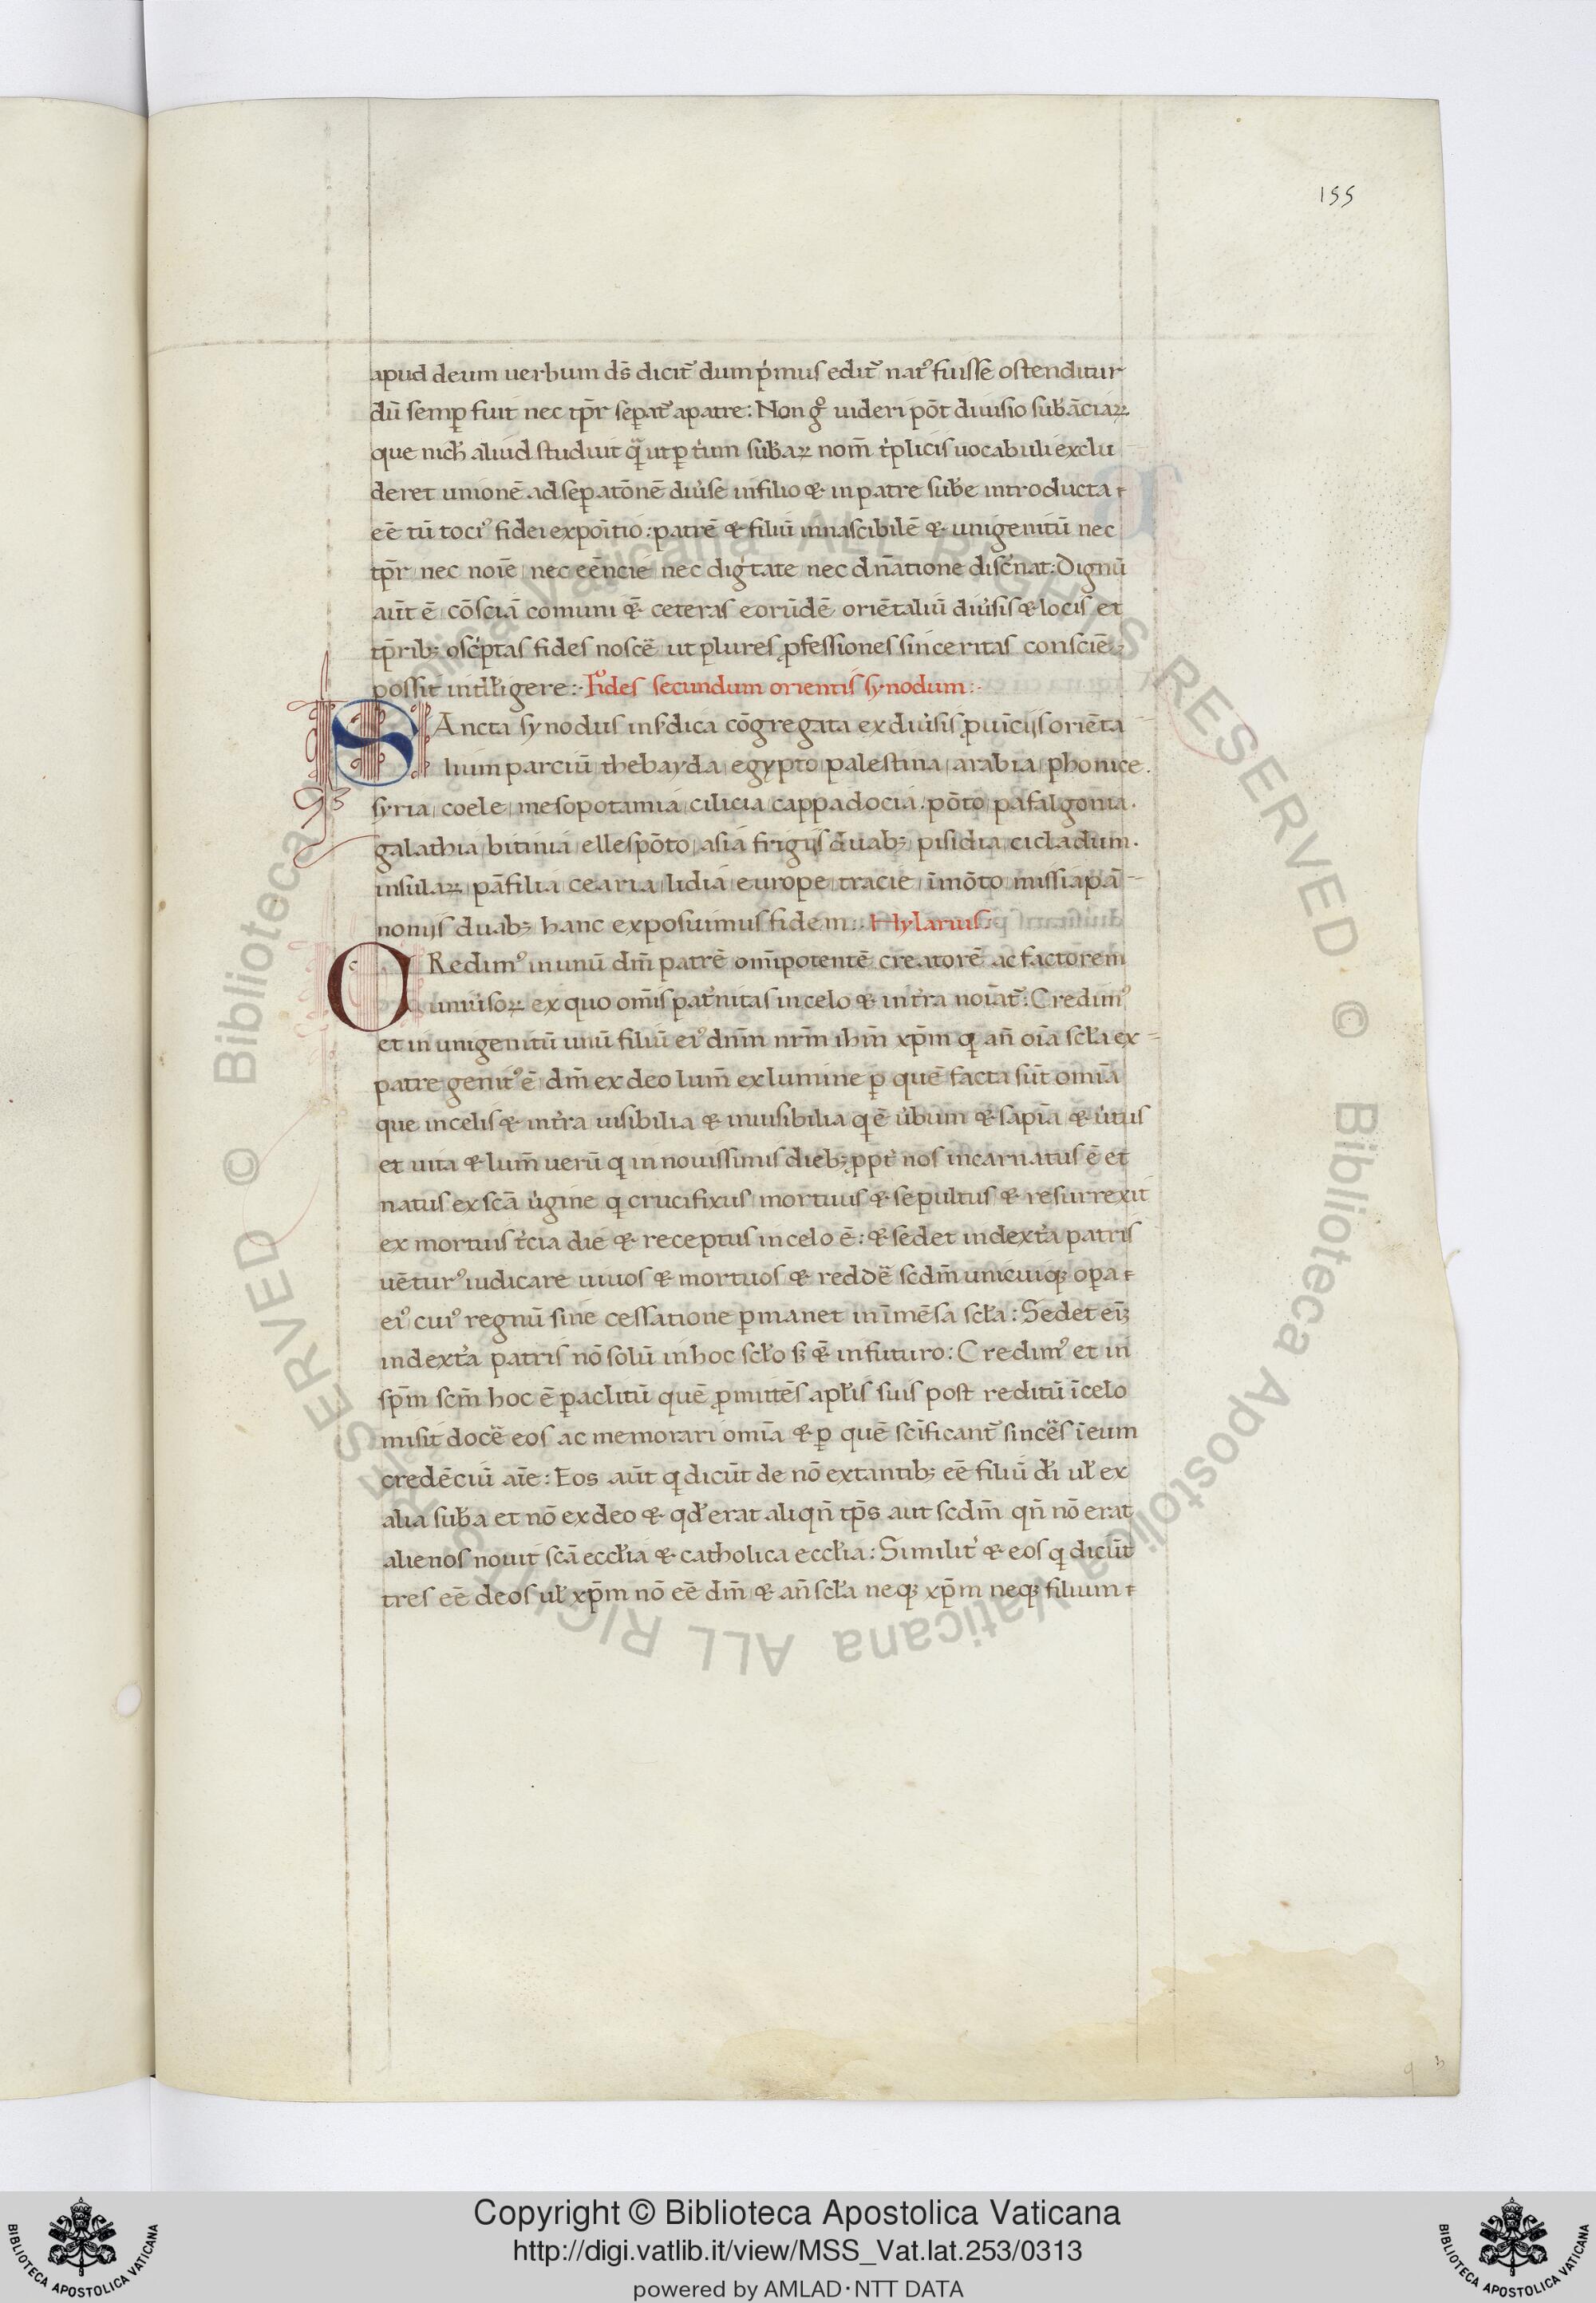 155
apud deum uerbum ds̄ dicit᷑ dum pͥmus edit᷑ natꝰ fuisse ostenditur
dū semꝑ fuit nec tp̄r seꝑat᷑ apatre: Non gͦ uideri pōt diuisio sub̄āciaꝝ
que nich̄ aliud studuit q̄ ut ꝑ tͥum sub̄aꝝ nom̄ tͥplicis uocabuli exclu
deret unionē ad seꝑatōnē diuͥse infilio & in patre sub̄e introducta
eē tū tociꝰ fidei expoītio: patrē & filiū innascibilē & unigenitū nec
tp̄r nec noīe nec eēncie nec digͥtate nec dn̄atione disc̄nat: Dignū
aūt ē cōsciā comuni & ceteras eorūdē oriētaliū diuͥsis & locis et
tp̄ribꝫ oscͥptas fides noscē ut plures ꝓfessiones sinceritas consciē
possit intll̄igere: Fides secundum orientis synodum:
SAncta synodus insͬdica cōgregata ex diuͥsis ꝓuīcijs oriēta
lium parciū thebayda egypto palestina arabia phonice.
syria coele mesopotamia cilicia cappadocia pōto pafalgonia.
galathia bitinia ellespōto asia frigijs duabꝫ pisidia cicladum.
insulaꝝ pāfilia cearia lidia europe tracie īmōto missia pā
nonijs duabꝫ hanc exposuimus fidem: Hylarius
CRedimꝰ in unū dm̄ patrē om̄ipotentē creatorē ac factorem
uniuͥsoꝝ ex quo om̄is patͥnitas in celo & in tͥra noīat᷑: Credimꝰ
et in unigenitū unū filiū eiꝰ dnm̄ nrm̄ ihm̄ xp̄m q an̄ oīa scl̄a ex
patre genitꝰ ē dm̄ ex deo lum̄ ex lumine ꝑ quē facta sūt omīa
que in celis & in tͥra uisibilia & inuisibilia q ē uͥbum & sapīa & uͥtus
et uita & lum̄ uerū q in nouissimis diebꝫ ꝓpt̄ nos incarnatus ē et
natus ex scā uͥgine q crucifixus mortuus & sepultus & resurrexit
ex mortuis tͥcia die & receptus in celo ē: & sedet in dextͥa patris
uēturꝰ iudicare uiuos & mortuos & reddē scdm̄ unicuiqꝫ oꝑa
eiꝰ cuiꝰ regnū sine cessatione ꝑmanet in īmēsa scl̄a: Sedet eīꝫ
in dextͥa patris nō solū in hoc scl̄o sꝫ & in futuro: Credimꝰ et in
sp̄m scm̄ hoc ē ꝑaclitū quē ꝓmittēs apl̄is suis post reditū ī celo
misit docē eos ac memorari omīa & ꝑ quē scīficant᷑ sincēs ī eum
credēciū aīe: Eos aūt q dicūt de nō extantibꝫ eē filiū di̅ ul̄ ex
alia sub̄a et nō ex deo & qd̄ erat aliqn̄ tp̄s aut scdm̄ qn̄ nō erat
alienos nouit scā eccl̄ia & catholica eccl̄ia: Similitͥ & eos q dicūt
tres eē deos ul̄ xp̄m nō eē dm̄ & an̄ scl̄a neqꝫ xp̄m neqꝫ filium
Copyright © Biblioteca Apostolica Vaticana
http://digi.vatlib.it/view/MSS_Vat.lat.253/0313
powered by AMLAD·NTT DATA